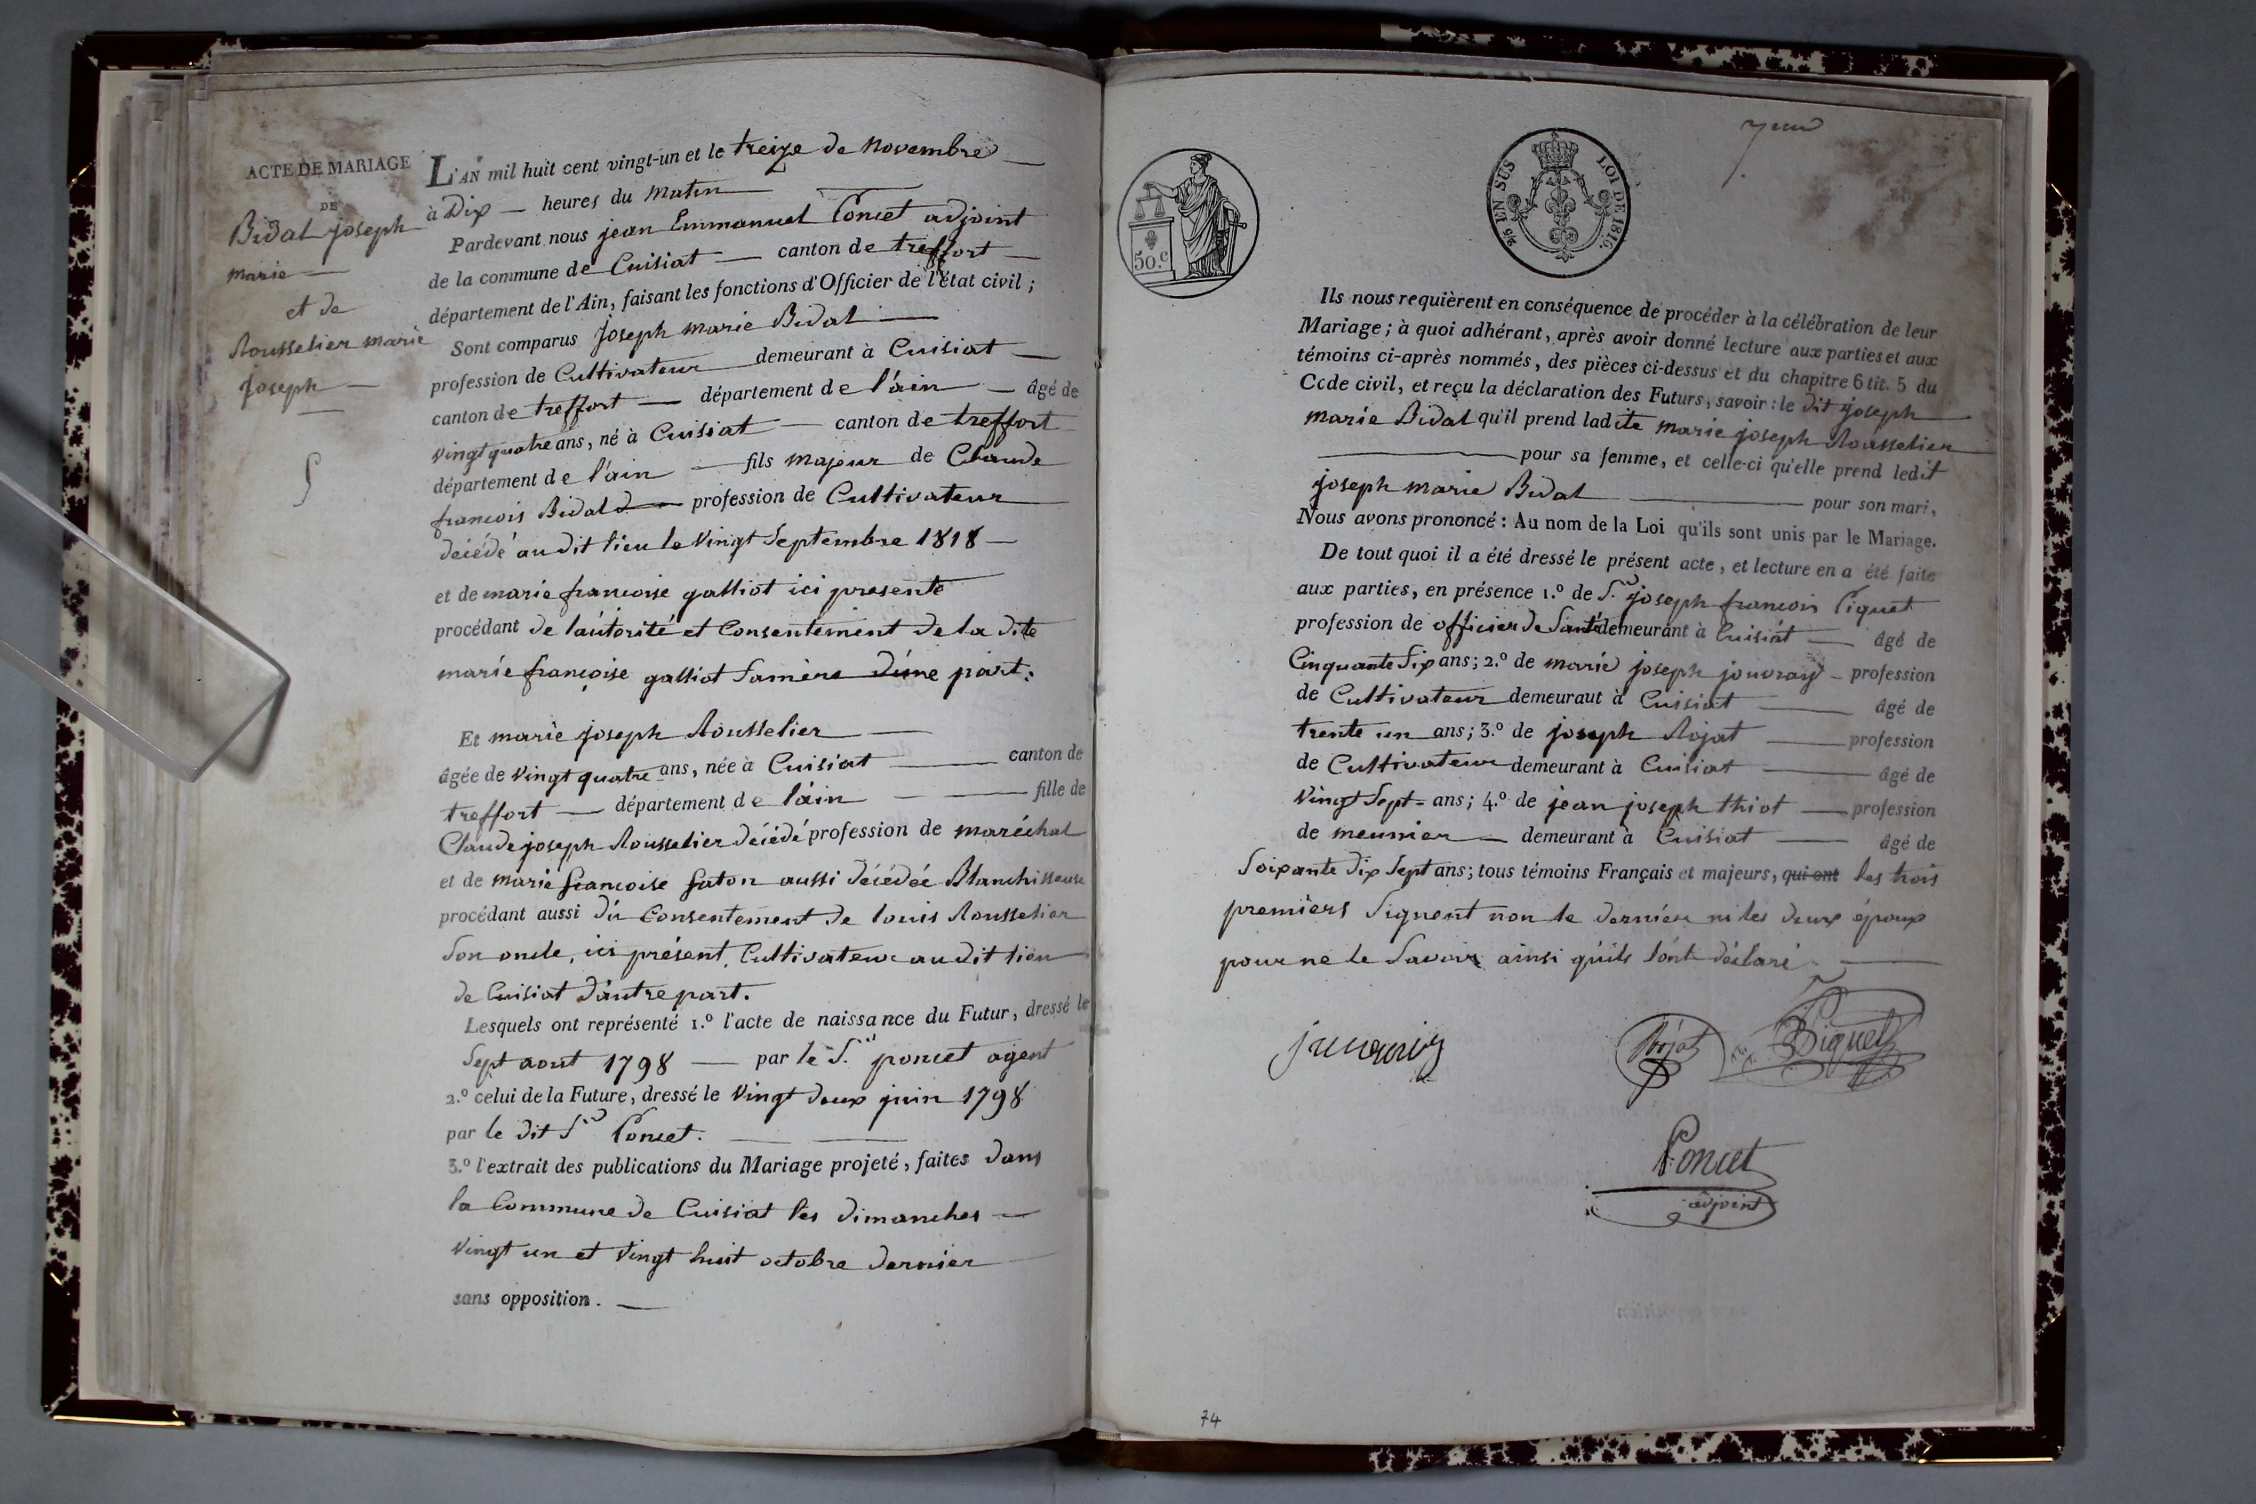 ACTE DE MARIAGE
DE
Bidal joseph
marie
et de
Rousselier marie
joseph
L'AN mil huit cent vingt-un et le treize de Novembre
à Dix heures du matin
Pardevant nous jean Emmanuel Poncet adjoint
de la commune de Cuisiat canton de treffort
département de l'Ain, faisant les fonctions d'Officier de l'état civil ;
Sont comparus Joseph marie Bidal
profession de Cultivateur demeurant à Cuisiat
canton de treffort département de l'ain âgé de
vingt quatre ans, né à Cuisiat canton de treffort
département de l'ain fils majeur de Claude
francois Bidal profession de Cultivateur
décédé au dit lieu le vingt Septembre 1818
et de marie francoise galliot ici presente
procédant de l'autorité et Consentement de la dite
marie françoise galliot Sa mère d'une part :
Et marie joseph Rousselier
âgée de vingt quatre ans, née à Cuisiat canton de
treffort département de l'ain fille de
Claude joseph Rousselier décédé profession de maréchal
et de marie francoise faton aussi décédée Blanchisseuse
procédant aussi du Consentement de louis Rousselier
Son oncle, ici présent, Cultivateur au dit lieu
de Cuisiat d'autre part.
Lesquels ont représenté 1.º l'acte de naissance du Futur, dressé le
Sept aout 1798 par le S.r poncet agent
2.º celui de la Future, dressé le vingt deux juin 1798
par le dit S.r Poncet.
3.º l'extrait des publications du Mariage projeté, faites dans
la Commune de Cuisiat les dimanches
vingt un et vingt huit octobre dernier
sans opposition.
50.c
EN SUS
LOI DE 1816.
Ils nous requièrent en conséquence de procéder à la célébration de leur
Mariage ; à quoi adhérant, après avoir donné lecture aux parties et aux
témoins ci-après nommés, des pièces ci-dessus et du chapitre 6 tit. 5 du
Code civil, et reçu la déclaration des Futurs, savoir : le dit joseph
marie Bidal qu'il prend ladite marie joseph Rousselier
pour sa femme, et celle-ci qu'elle prend ledit
joseph marie Bidal pour son mari,
Nous avons prononcé : Au nom de la Loi qu'ils sont unis par le Mariage.
De tout quoi il a été dressé le présent acte, et lecture en a été faite
aux parties, en présence 1.º de S.r joseph francois Piquet
profession de officier de Santé demeurant à Cuisiat âgé de
Cinquante Six ans ; 2.º de marie joseph jouvray profession
de Cultivateur demeuraut à Cuisiat âgé de
trente un ans ; 3.º de joseph Rojat profession
de Cultivateur demeurant à Cuisiat âgé de
vingt Sept ans ; 4.º de jean joseph thiot profession
de meunier demeurant à Cuisiat âgé de
Soixante dix Sept ans ; tous témoins Français et majeurs, qui ont les trois
premiers Signent non le dernier ni les deux époux
pour ne le Savoir ainsi qu'ils l'ont déclaré.
Rojat
Piquet
Poncet
adjoint
74